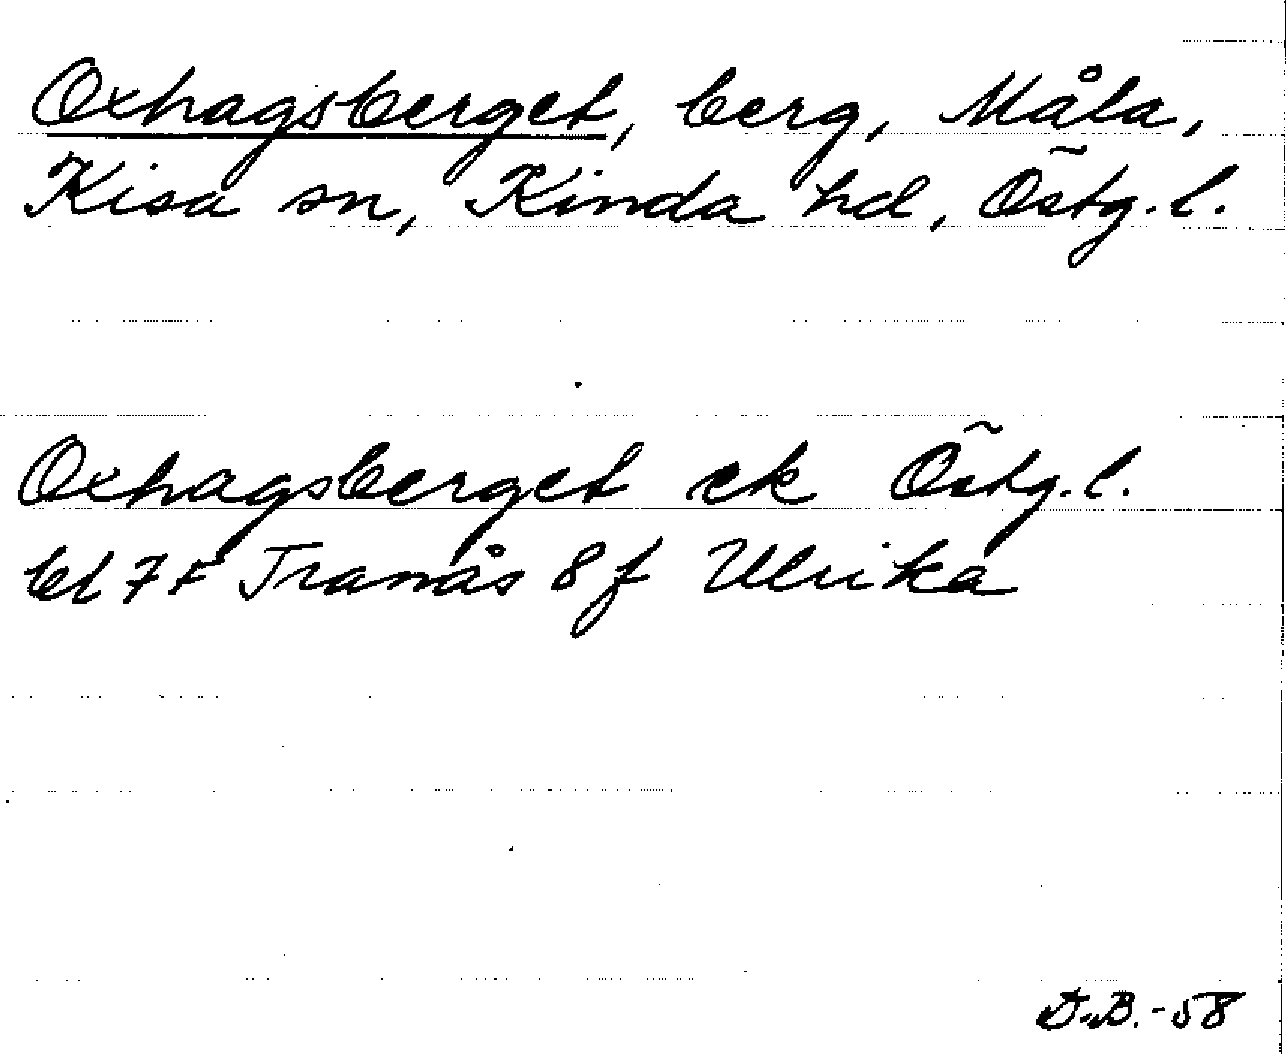 Oxhagsberget, berg, Måla,
Kisa sn, Kinda hd, Östg. l.
Oxhagsberget ek Östg. l.
bl 7F Tranås 8f Ulrika
D.B. -58